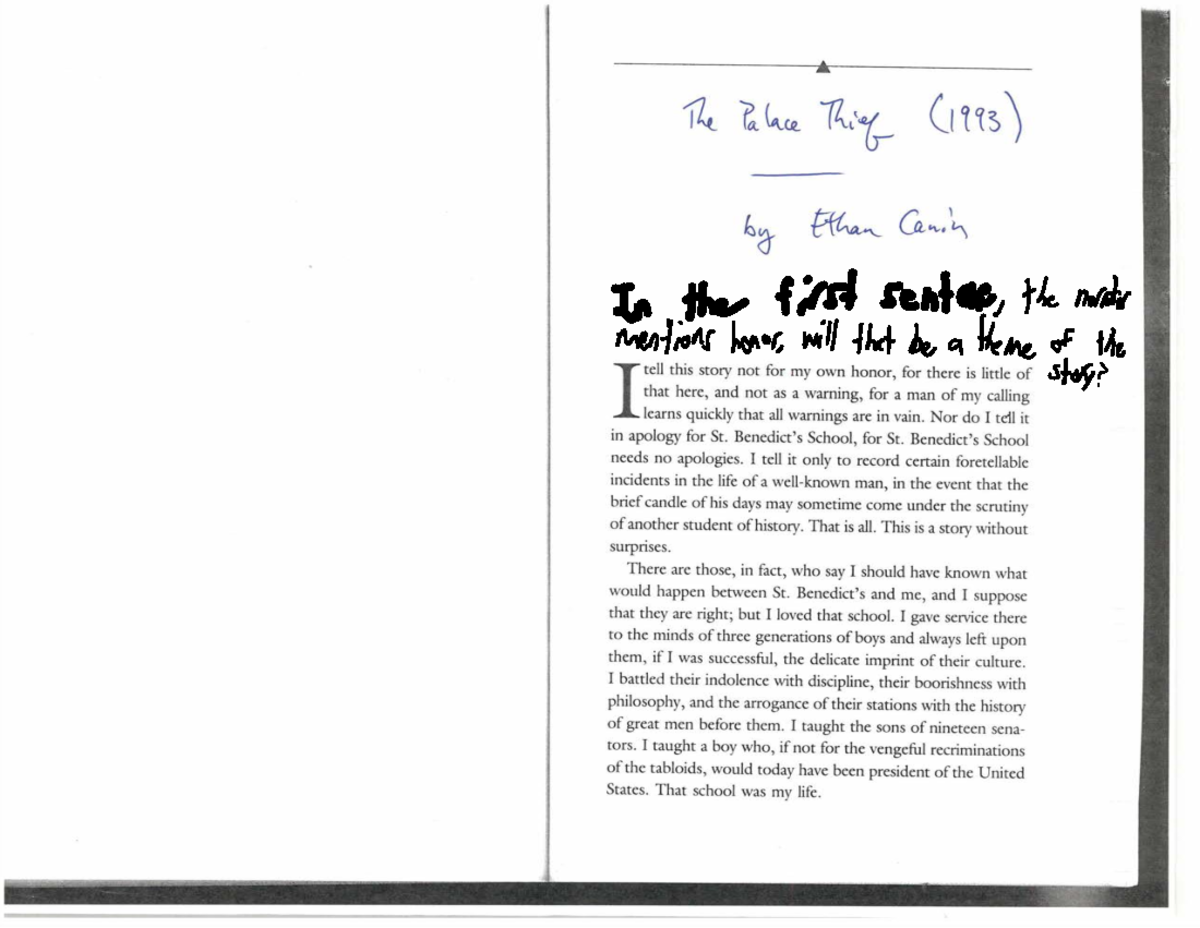 The Palace Thief (1993)
by Ethan Canin
In the first sentce, the
mentions honor, will that be a theme of the
story?
I tell this story not for my own honor, for there is little of
that here, and not as a warning, for a man of my calling
learns quickly that all warnings are in vain. Nor do I tell it
in apology for St. Benedict's School, for St. Benedict's School
needs no apologies. I tell it only to record certain foretellable
incidents in the life of a well-known man, in the event that the
brief candle of his days may sometime come under the scrutiny
of another student of history. That is all. This is a story without
surprises.
There are those, in fact, who say I should have known what
would happen between St. Benedict's and me, and I suppose
that they are right; but I loved that school. I gave service there
to the minds of three generations of boys and always left upon
them, if I was successful, the delicate imprint of their culture.
I battled their indolence with discipline, their boorishness with
philosophy, and the arrogance of their stations with the history
of great men before them. I taught the sons of nineteen sena-
tors. I taught a boy who, if not for the vengeful recriminations
of the tabloids, would today have been president of the United
States. That school was my life.